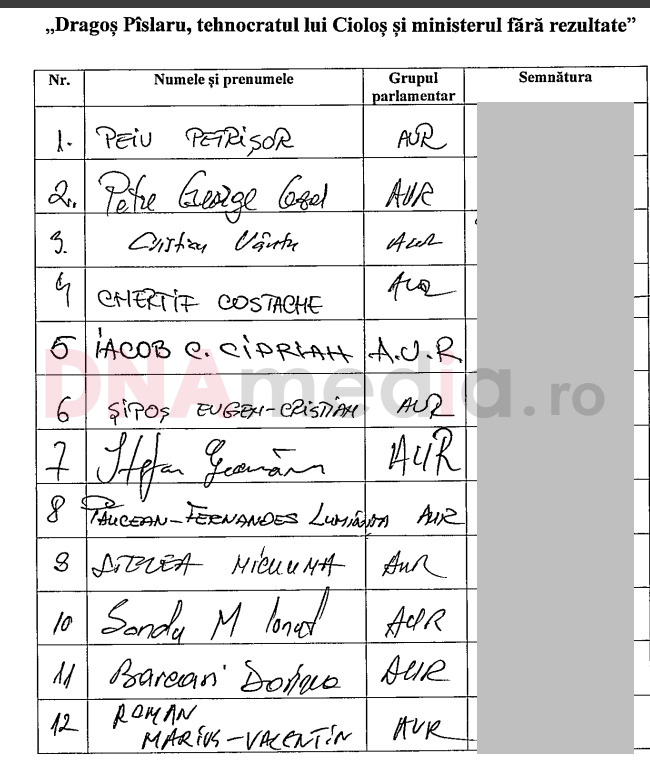 „Dragoș Pîslaru, tehnocratul lui Cioloș și ministerul fără rezultate”
Nr. Numele și prenumele Grupul parlamentar Semnătura
1. PEIU PETRIȘOR AUR
2. Petre George AUR
3. Cristian Vântu AUR
4 CHERTIF COSTACHE AUR
5 IACOB C. CIPRIAN A.U.R
6 ȘIPOȘ EUGEN-CRISTIAN AUR
7 Ștefan Geamănu AUR
8 PĂUCEAN-FERNANDES LUMINIȚA AUR
9 AUR
10 Sandu M Ionuț AUR
11 Barcari Dorina AUR
12 ROMAN
MARIUS-VALENTIN AUR
DNAmedia.ro